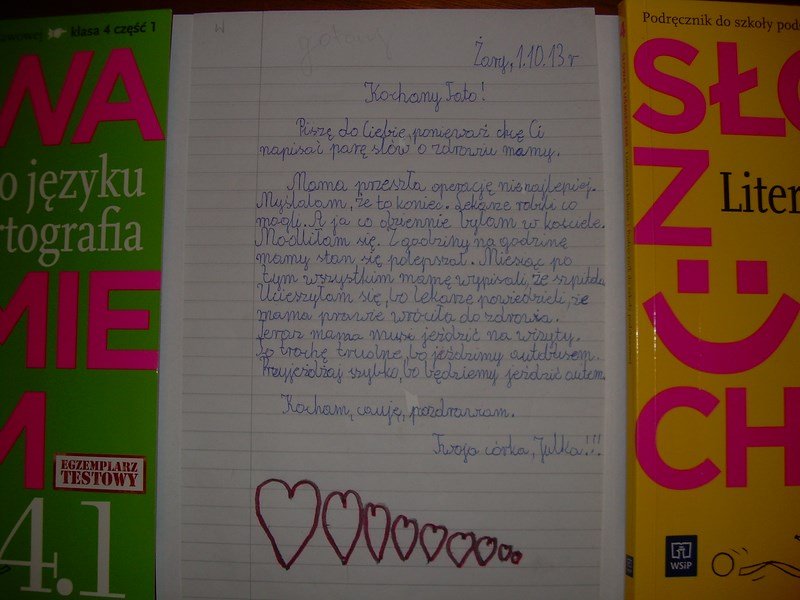 zwowej klasa 4 część 1
WA
o języku
rtografia
MIE
M
EGZEMPLARZ
TESTOWY
4.1
W
gotowy
Żary, 1.10.13 r
Kochany Tato!
Piszę do Ciebie, ponieważ chcę Ci
napisać parę słów o zdrowiu mamy.
Mama przeszła operację nie najlepiej.
Myślałam, że to koniec. Lekarze robili co
mogli. A ja co dziennie byłam w kościele.
Modliłam się. Z godziny na godzinę
mamy stan się polepszał. Miesiąc po
tym wszystkim mamę wypisali, ze szpitala.
Ucieszyłam się, bo lekarze powiedzieli, że
mama prawie wróciła do zdrowia.
Teraz mama musi jeździć na wizyty.
To trochę trudne, bo jeździmy autobusem.
Przyjeżdżaj szybko, bo będziemy jeździć autem.
Kocham, całuję, pozdrawiam.
Twoja córka, Julka!!!
Podręcznik do szkoły pods
SŁO
Z
Liter
CH
WSiP